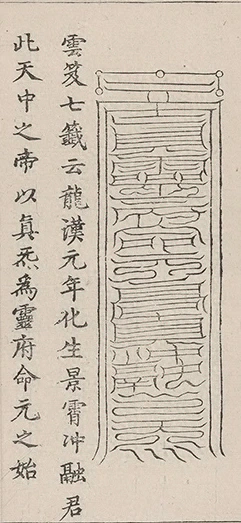 雲笈七籤云龍漢元年化生景霄沖融君
此天中之帝以真炁為靈府命元之始